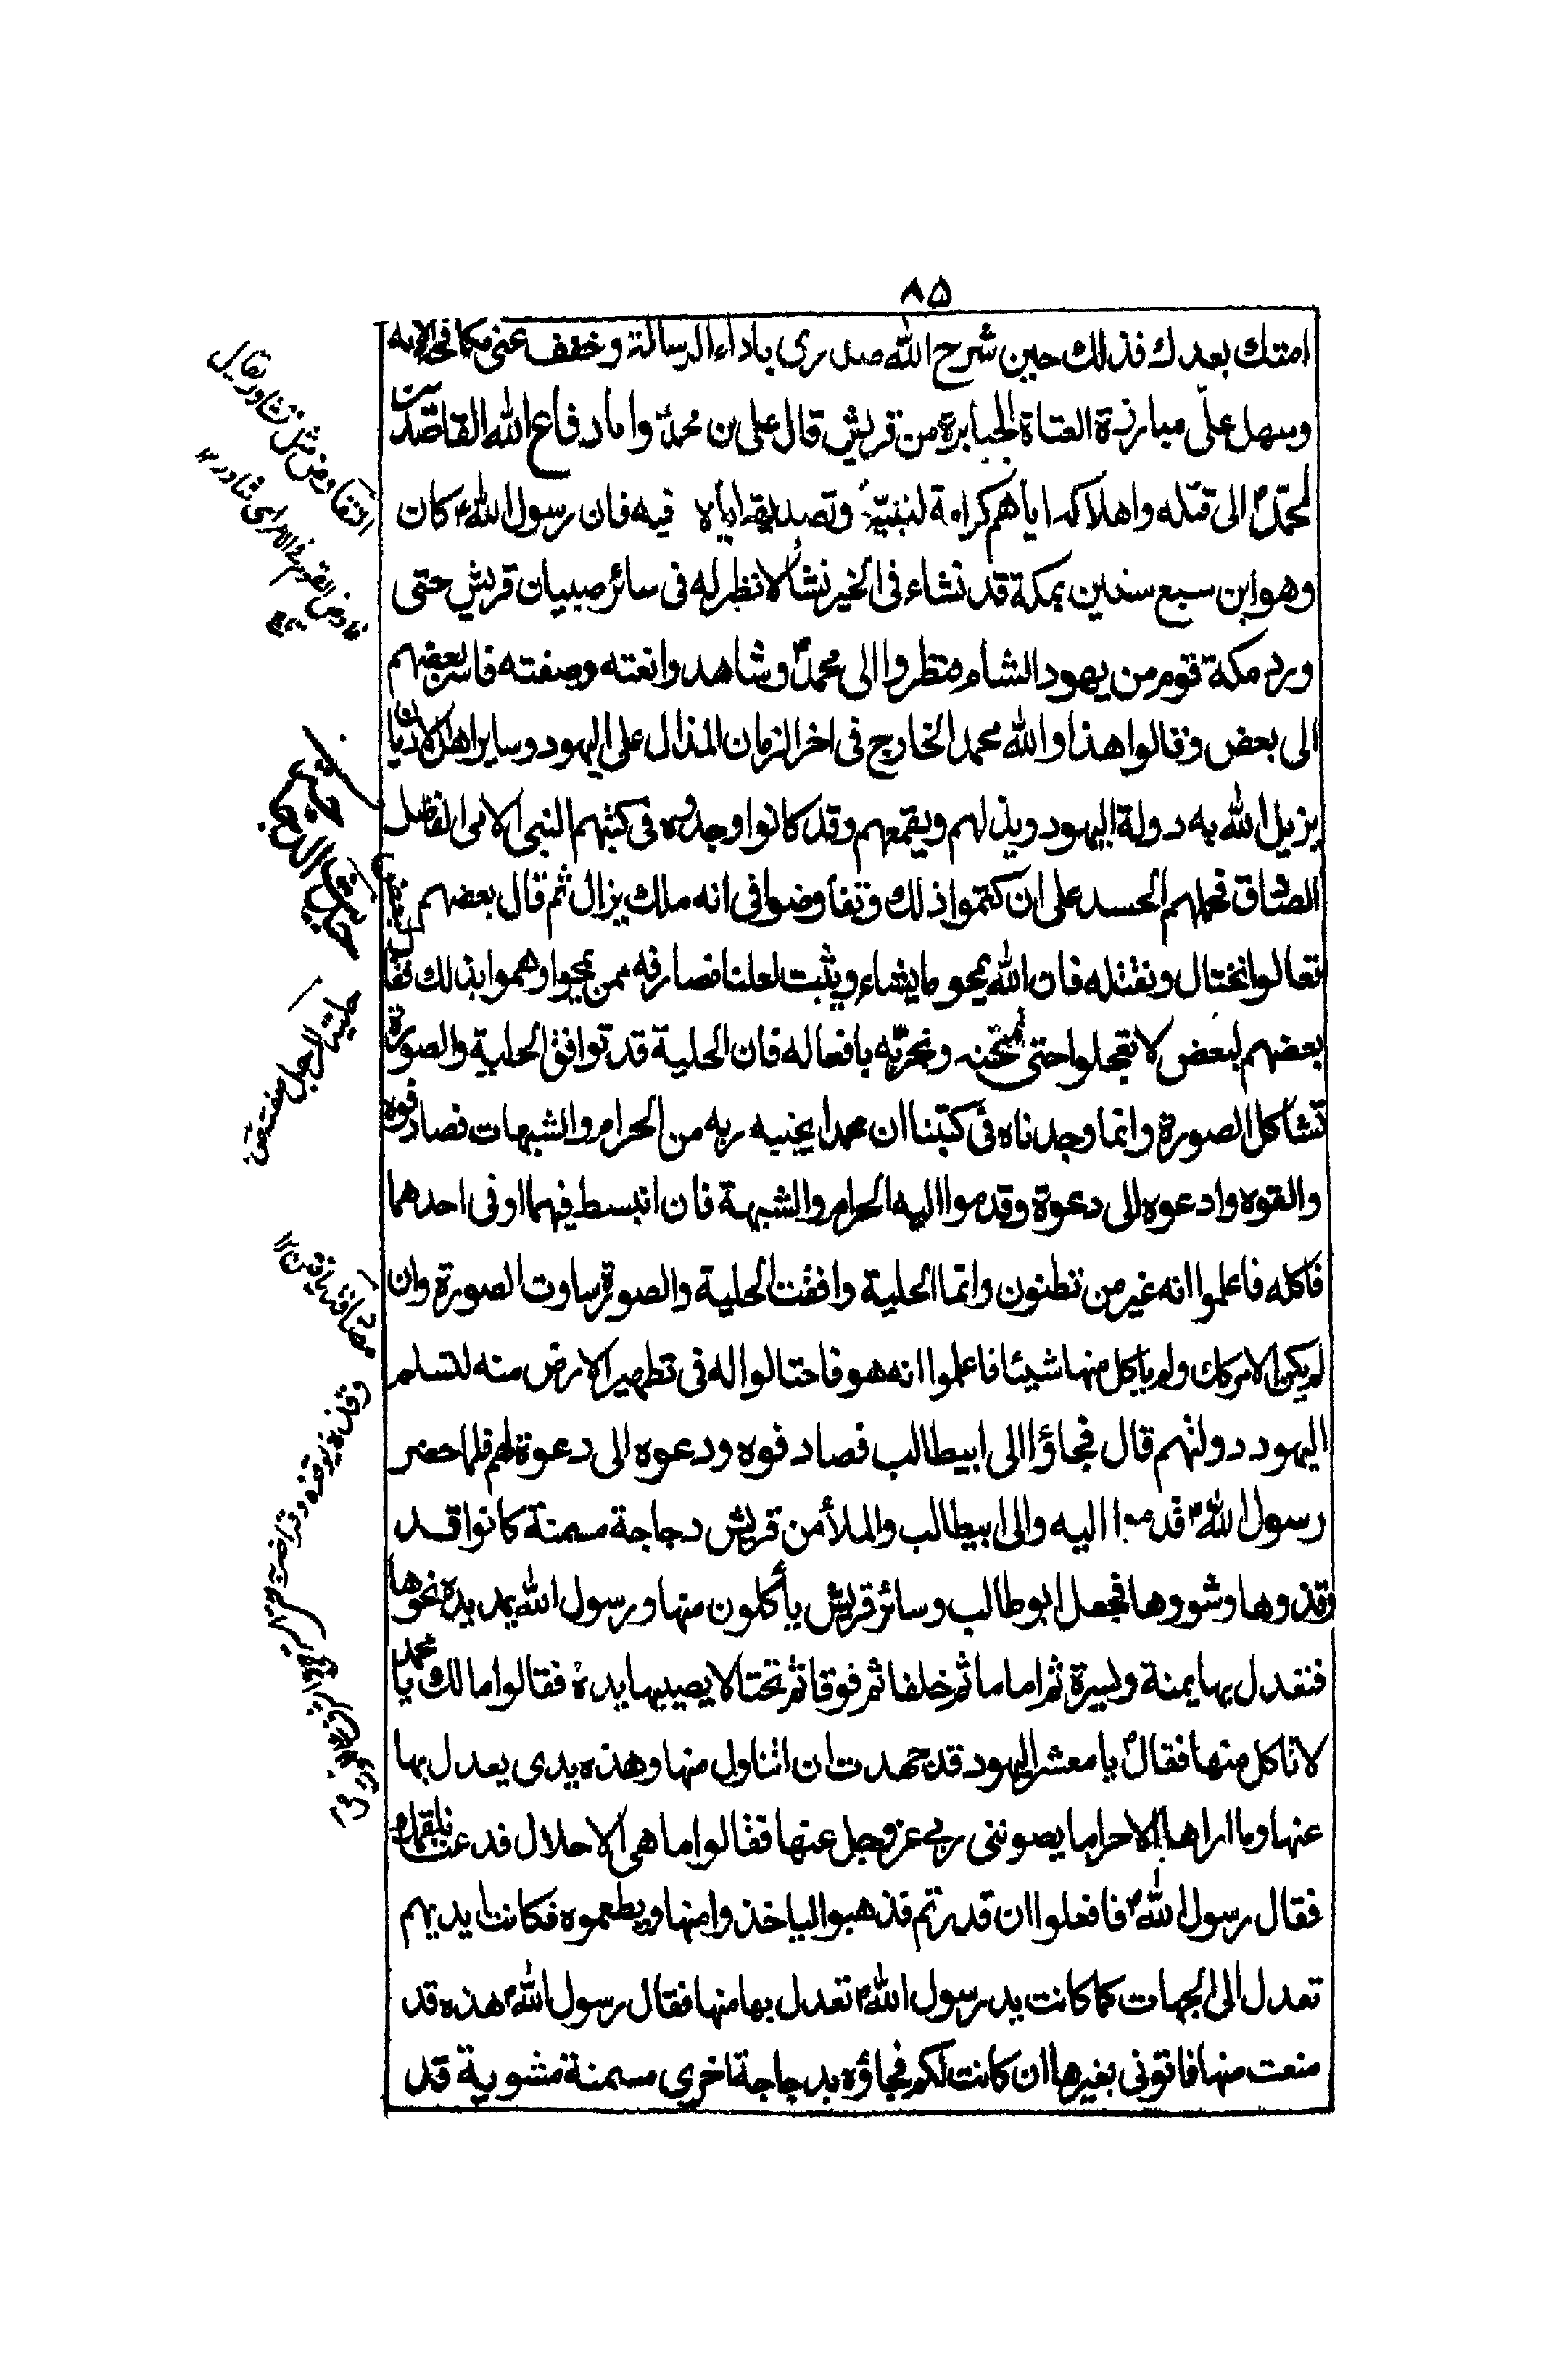 ٨۵
امتك بعدك فذلك حين شرح الله صدرى باداء الرسالة وخفف عنى مكافحة الامة
وسهل علىّ مبارزة العتاة الجبابرة من قريش قال على بن محمدؑ واما دفاع الله القاصدين
لمحمّدؐ الى قتله واهلاكه اياهم كرامة لنبيّهؐ وتصديقه اياه فيه فان رسول اللهؐ كان
وهو ابن سبع سنين بمكة قد نشاء فى الخير نشأ لا نظير له فى سائر صبيان قريش حتى
ورد مكة قوم من يهود الشام فنظروا الى محمدؐ وشاهدوا نعته وصفته فاسر بعضهم
الى بعض وقالوا هذا والله محمد الخارج فى اخر الزمان المذال على اليهود وساير اهل الاديان
يزيل الله به دولة اليهود ويذلهم ويقمعهم وقد كانوا وجدوه فى كتبهم النبى الامى الفاضل
الصادق فحملهم الحسد على ان كتموا ذلك وتفاوضوا فى انه ملك يزال ثم قال بعضهم لبعض
تعالوا نحتال ونقتله فان الله يمحو ما يشاء ويثبت لعلنا نصادفه ممن يمحوا وهموا بذلك فقال
بعضهم لبعض لا تعجلوا حتى نمتحنه ونجرّبه بافعاله فان الحلية قد توافق الحلية والصورة
تشاكل الصورة وانما وجدناه فى كتبنا ان محمدا يجنبه ربه من الحرام والشبهات فصادفوه
والقوه وادعوه الى دعوة وقدموا اليه الحرام والشبهة فان انبسط فيهما او فى احدهما
فاكله فاعلموا انه غير من تظنون وانما الحلية وافقت الحلية والصورة ساوت الصورة وان
لم يكن الامر كك ولم ياكل منها شيئا فاعلموا انه هو فاحتالوا له فى تطهير الارض منه لتسلم
اليهود دولتهم قال فجاؤا الى ابيطالب فصادفوه ودعوه الى دعوة لهم فلما حضر
رسول اللهؐ قدموا اليه والى ابيطالب والملأ من قريش دجاجة مسمنة كانوا قد
وقذوها وشووها فجعل ابوطالب وسائر قريش يأكلون منها ورسول الله يمد يده نحوها
فتعدل بها يمنة ويسرة ثم اماما ثم خلفا ثم فوقا ثم تحتا لا يصيبها يدهؐ فقالوا مالك يا محمد
لا تاكل منها فقالؐ يا معشر اليهود قد جهدت ان اتناول منها وهذه يدى يعدل بها
عنها وما اراها الا حراما يصوننى ربى عز وجل عنها فقالوا ما هى الا حلال فدعنا نلقمك
فقال رسول اللهؐ فافعلوا ان قدرتم فذهبوا لياخذوا منها ويطعموه فكانت ايديهم
تعدل الى الجهات كما كانت يد رسول اللهؐ تعدل بها منها فقال رسول اللهؐ هذه قد
منعت منها فاتونى بغيرها ان كانت لكم فجاؤه بدجاجة اخرى مسمنة مشوية قد